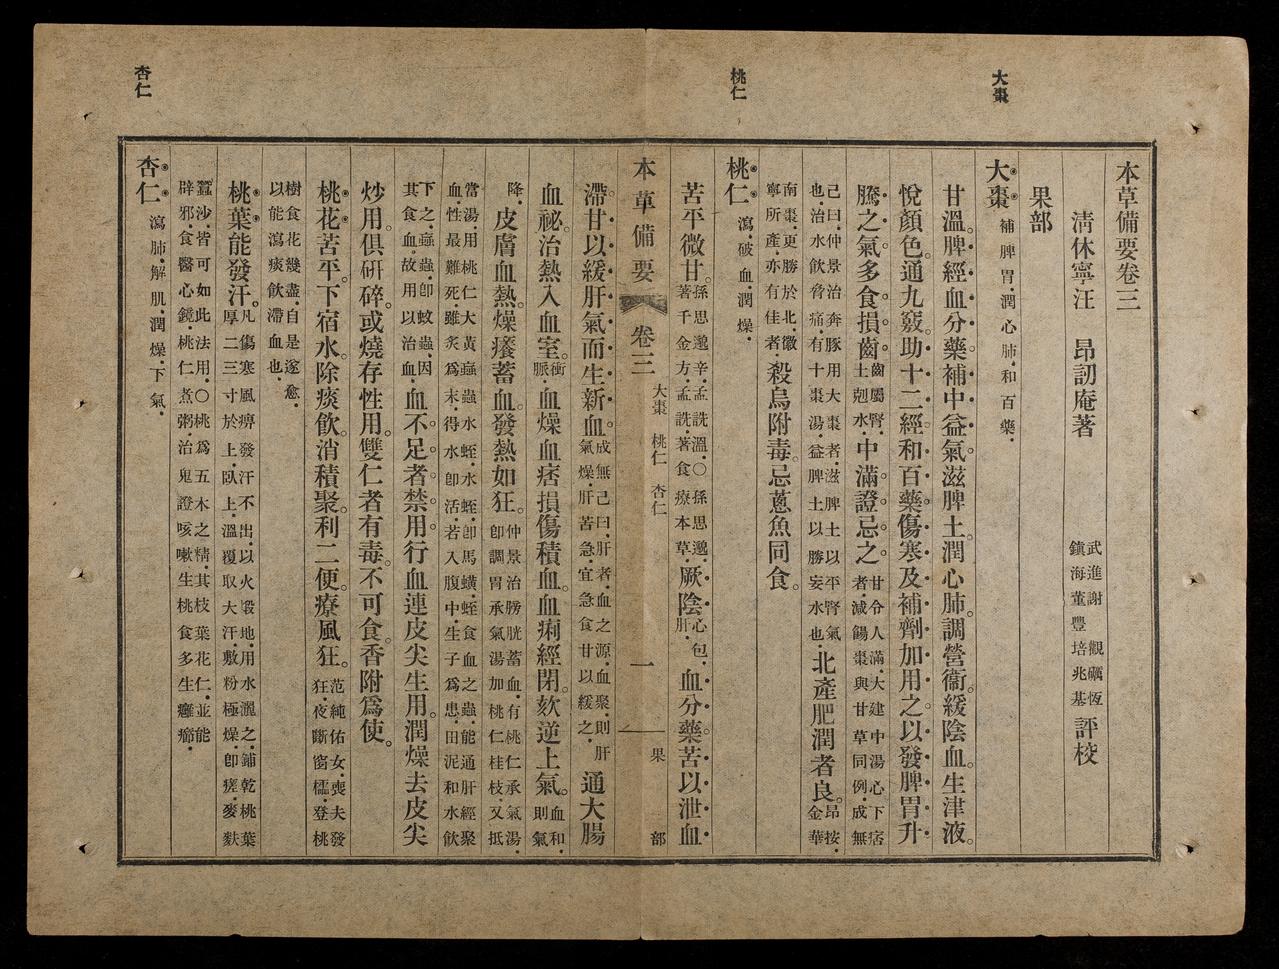 大棗
桃仁
杏仁
本草備要卷三
清休寧汪 昂訒庵著
武進謝 觀礪恆
鎮海董豐培兆基
評校
果部
大棗
補脾胃．潤心肺．和百藥．
甘溫。脾經血分藥。補中益氣。滋脾土。潤心肺。調營衞。緩陰血。生津液。
悅顏色。通九竅。助十二經。和百藥。傷寒及補劑加用之。以發脾胃升
騰之氣。多食損齒。齒屬腎．土剋水．中滿證忌之。甘令人滿．大建中湯心下痞者．減餳棗．與甘草同例．成無
己曰．仲景治奔豚用大棗者．滋脾土以平腎氣也．治水飲脅痛．有十棗湯．益脾土以勝妄水也．北產肥潤者良。昂按．金華
南棗．更勝於北．徽寧所產．亦有佳者．殺烏附毒。忌蔥魚同食。
桃仁
瀉．破血．潤燥．
苦平微甘。孫思邈．辛．孟詵．溫．〇孫思邈．著千金方．孟詵．著食療本草．厥陰心包．肝．血分藥。苦以泄血
本草備要 卷三 大棗 桃仁 杏仁 一 果部
滯。甘以緩肝氣而生新血。成無己曰．肝者．血之源．血聚．則肝氣燥．肝苦急．宜急食甘以緩之．通大腸
血祕。治熱入血室。衝脈．血燥血痞。損傷積血。血痢經閉。欬逆上氣。血和．則氣
降．皮膚血熱。燥癢蓄血。發熱如狂。仲景治膀胱蓄血．有桃仁承氣湯．即調胃承氣湯加桃仁桂枝．又抵
當湯．用桃仁大黃䖟蟲水蛭．水蛭．卽馬蟥．蛭食血之蟲．能通肝經聚血．性最難死．雖炙爲末．得水卽活．若入腹中．生子爲患．田泥和水飲
下之．䖟蟲．卽蚊蟲．因其食血．故用以治血．血不足者禁用。行血連皮尖生用。潤燥去皮尖
炒用。俱研碎。或燒存性用。雙仁者有毒。不可食。香附爲使。
桃花苦平。下宿水。除痰飲。消積聚。利二便。療風狂。范純佑女．喪夫發狂．夜斷窗欞．登桃
樹食花幾盡．自是遂愈．以能瀉痰飲滯血也．
桃葉能發汗。凡傷寒風痹．發汗不出．以火煅地．用水灑之．鋪乾桃葉厚二三寸於上．臥上．溫覆取大汗．敷粉極燥．卽瘥．麥麩
蠶沙．皆可如此法用．〇桃爲五木之精．其枝葉花仁．並能辟邪．食醫心鏡．桃仁煮粥．治鬼證咳嗽．生桃食多生癰癤．
杏仁
瀉肺．解肌．潤燥．下氣．